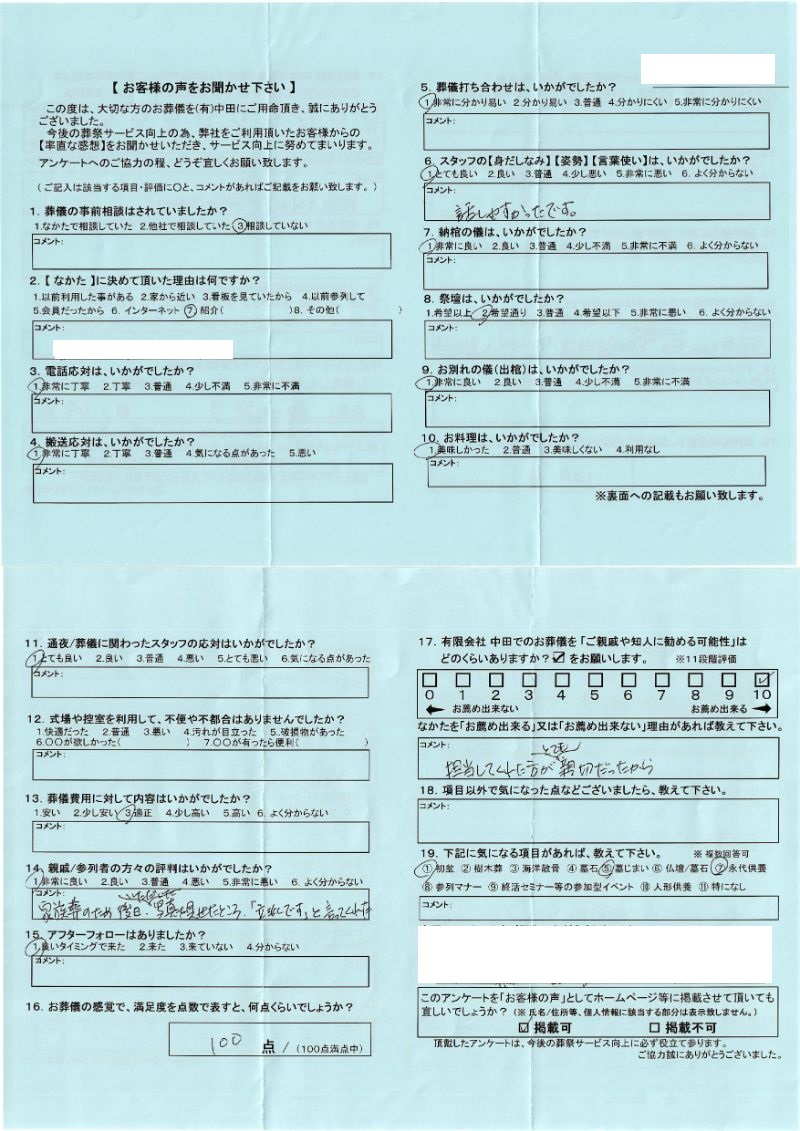 【 お客様の声をお聞かせ下さい 】
この度は、大切な方のお葬儀を(有)中田にご用命頂き、誠にありがとう
ございました。
今後の葬祭サービス向上の為、弊社をご利用頂いたお客様からの
【率直な感想】をお聞かせいただき、サービス向上に努めてまいります。
アンケートへのご協力の程、どうぞ宜しくお願い致します。
（ご記入は該当する項目・評価に○と、コメントがあればご記載をお願い致します。）
1. 葬儀の事前相談はされていましたか？
1.なかたで相談していた 2.他社で相談していた 3.相談していない
コメント：
2.【 なかた 】に決めて頂いた理由は何ですか？
1.以前利用した事がある 2.家から近い 3.看板を見ていたから 4.以前参列して
5.会員だったから 6. インターネット 7. 紹介( )8. その他( )
コメント：
3. 電話応対は、いかがでしたか？
1.非常に丁寧 2.丁寧 3.普通 4.少し不満 5.非常に不満
コメント：
4. 搬送応対は、いかがでしたか？
1.非常に丁寧 2.丁寧 3.普通 4.気になる点があった 5.悪い
コメント：
5. 葬儀打ち合わせは、いかがでしたか？
1.非常に分かり易い 2.分かり易い 3.普通 4.分かりにくい 5.非常に分かりにくい
コメント：
6. スタッフの【身だしなみ】【姿勢】【言葉使い】は、いかがでしたか？
1.とても良い 2.良い 3.普通 4.少し悪い 5.非常に悪い 6. よく分からない
コメント：
話しやすかったです。
7. 納棺の儀は、いかがでしたか？
1.非常に良い 2.良い 3.普通 4.少し不満 5.非常に不満 6. よく分からない
コメント：
8. 祭壇は、いかがでしたか？
1.希望以上 2.希望通り 3.普通 4.希望以下 5.非常に悪い 6. よく分からない
コメント：
9. お別れの儀(出棺)は、いかがでしたか？
1.非常に良い 2.良い 3.普通 4.少し不満 5.非常に不満
コメント：
10. お料理は、いかがでしたか？
1.美味しかった 2.普通 3.美味しくない 4.利用なし
コメント：
※裏面への記載もお願い致します。
11. 通夜/葬儀に関わったスタッフの応対はいかがでしたか？
1.とても良い 2.良い 3.普通 4.悪い 5.とても悪い 6.気になる点があった
コメント：
12. 式場や控室を利用して、不便や不都合はありませんでしたか？
1.快適だった 2.普通 3.悪い 4.汚れが目立った 5.破損物があった
6.○○が欲しかった( ) 7.○○が有ったら便利( )
コメント：
13. 葬儀費用に対して内容はいかがでしたか？
1.安い 2.少し安い 3.適正 4.少し高い 5.高い 6. よく分からない
コメント：
14. 親戚/参列者の方々の評判はいかがでしたか？
1.非常に良い 2.良い 3.普通 4.悪い 5.非常に悪い 6. よく分からない
コメント：
いただいた
家族葬のため後日、写真を見せたところ、「立派です」と言ってくれた
15. アフターフォローはありましたか？
1.良いタイミングで来た 2.来た 3.来ていない 4.分からない
コメント：
16. お葬儀の感覚で、満足度を点数で表すと、何点くらいでしょうか？
100 点 / (100点満点中)
17. 有限会社 中田でのお葬儀を「ご親戚や知人に勧める可能性」は
どのくらいありますか？☑をお願いします。 ※11段階評価
0 1 2 3 4 5 6 7 8 9 10
お薦め出来ない お薦め出来る
なかたを「お薦め出来る」又は「お薦め出来ない」理由があれば教えて下さい。
コメント：
とても
担当してくれた方が親切だったから
18. 項目以外で気になった点などございましたら、教えて下さい。
コメント：
19. 下記に気になる項目があれば、教えて下さい。 ※ 複数回答可
① 初盆 ② 樹木葬 ③ 海洋散骨 ④ 墓石 ⑤ 墓じまい ⑥ 仏壇/墓石 ⑦ 永代供養
⑧ 参列マナー ⑨ 終活セミナー等の参加型イベント ⑩ 人形供養 ⑪ 特になし
コメント：
このアンケートを「お客様の声」としてホームページ等に掲載させて頂いても
宜しいでしょうか？（※ 氏名/住所等、個人情報に該当する部分は表示致しません。）
☑ 掲載可 □ 掲載不可
頂戴したアンケートは、今後の葬祭サービス向上に必ず役立て参ります。
ご協力誠にありがとうございました。